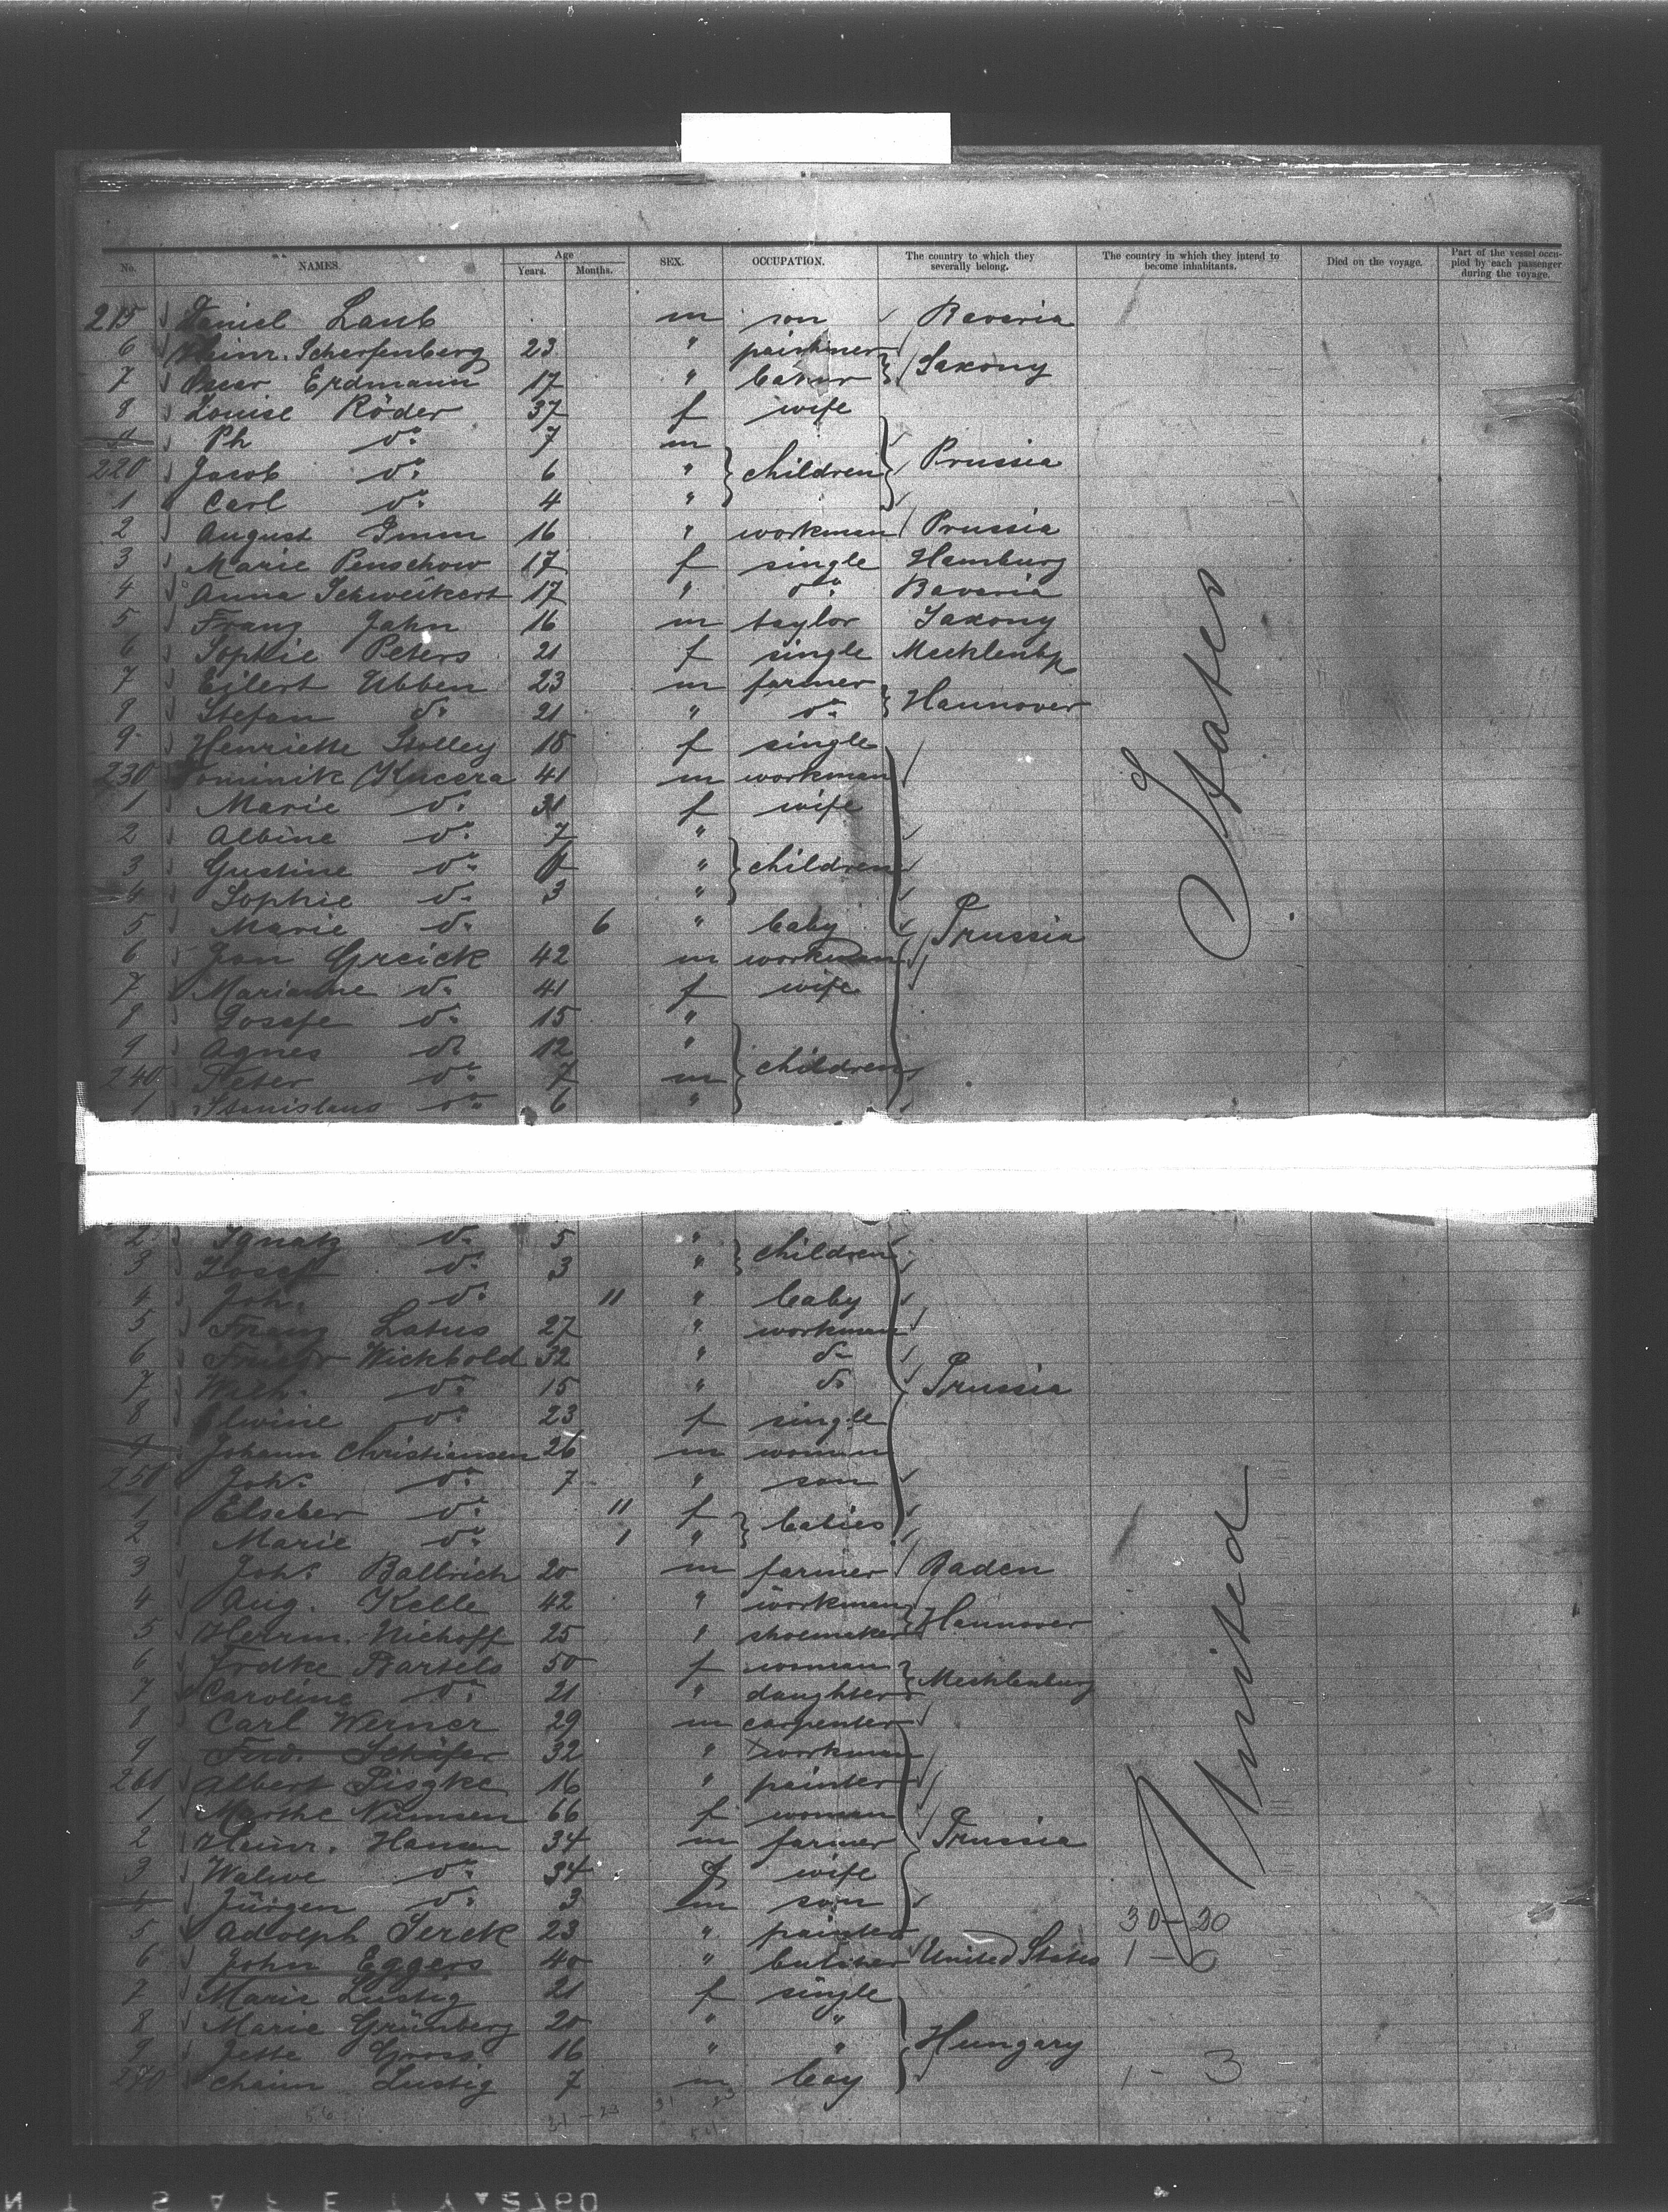 No. NAMES. Age Years. Months. SEX. OCCUPATION. The country to which they severally belong. The country in which they intend to become inhabitants. Died on the voyage. Part of the vessel occupied by each passenger during the voyage.
215 Daniel Laub m son Bavaria
6 Heinr. Scherfenberg 23 "
7 Oscar Erdmann 17 " Saxony
8 Louise Röder 37 f wife
9 Ph do 7 m
220 Jacob do 6 " children Prussia
1 Carl do 4 "
2 August Imm 16 " workman Prussia
3 Marie Penschow 17 f single Hamburg
4 Anna Schweikert 17 " do Bavaria
5 Franz Jahn 16 m taylor Saxony
6 Sophie Peters 21 f single Mecklenbg
7 Eilert Ubben 23 m farmer
8 Stefan do 21 " do Hannover
9 Henriette Stolley 18 f single
230 Dominik Kucera 41 m workman
1 Marie do 31 f wife
2 Albine do 7 "
3 Gustine do " children
4 Sophie do 3 "
5 Marie do 6 " baby Prussia
6 Jan Greick 42 m workman
7 Marianne do 41 f wife
8 Josefe do 15 "
9 Agnes do 12 "
240 Peter do 7 m children
1 Stanislaus do 6 "
2 Ignatz do 5 " children
3 Josef do 3 "
4 Joh. do 11 " baby
5 Franz Latus 27 " workman
6 Wickbold 32 " do
7 Wilh. do 15 " do Prussia
8 Elwine do 23 f single
9 Johann Christiansen 26 m woman
250 Joh. do 7 " son
1 Elseber do 11 f babies
2 Marie do 1 "
3 Joh. Ballrich 20 m farmer Baden
4 Aug. Kelle 42 " workman
5 Herm. Niehoff 25 " shoemaker Hannover
6 Frdke Bartels 50 f woman
7 Caroline do 21 " daughter Mecklenburg
8 Carl Werner 29 m carpenter
9 Ferd. Schäfer 32 " workman
260 Albert Piszke 16 " painter
1 Marthe Numsen 66 f woman
2 Heinr. Hansen 34 m farmer Prussia
3 do 34 f wife
4 Jürgen do 3 m son
5 Adolph Serck 23 " painter
6 John Eggers 40 " butcher United States
7 Marie Lustig 21 f single
8 Marie Grünberg 20 " "
9 Jette Gross 16 " " Hungary
270 Chaim Lustig 7 m boy
United States
30-20
1-0
1-3